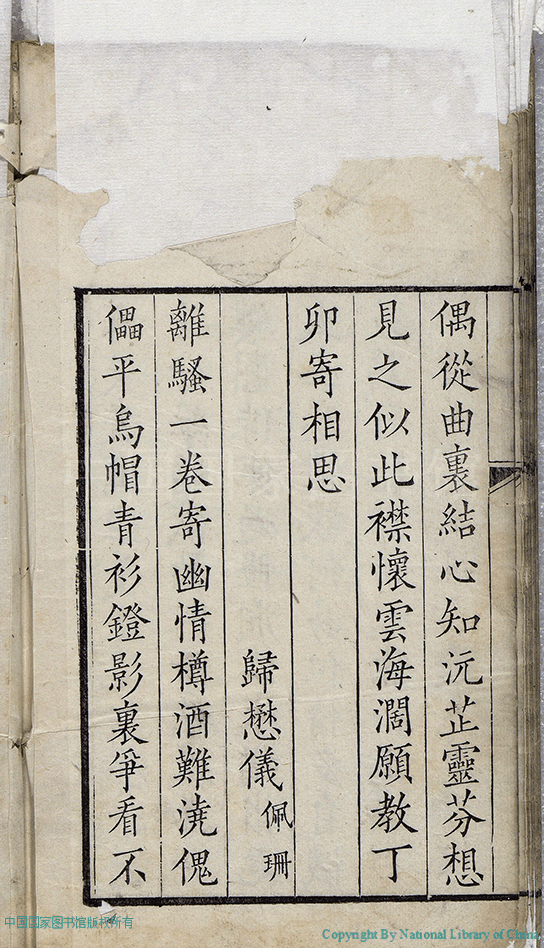 偶從曲裏結心知沅芷靈芬想
見之似此襟懷雲海濶願教丁
卯寄相思
歸懋儀佩珊
離騷一卷寄幽情樽酒難澆傀
儡平烏帽青衫鐙影裏爭看不
中国国家图书馆版权所有
Copyright By National Library of China